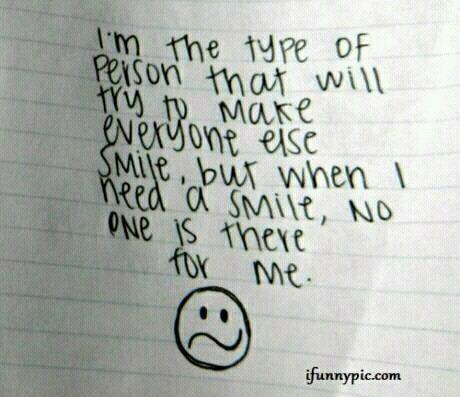 I'm the type of
Person that will
try to make
everyone else
Smile, but when I
need a smile, NO
ONE is there
for me.
ifunnypic.com